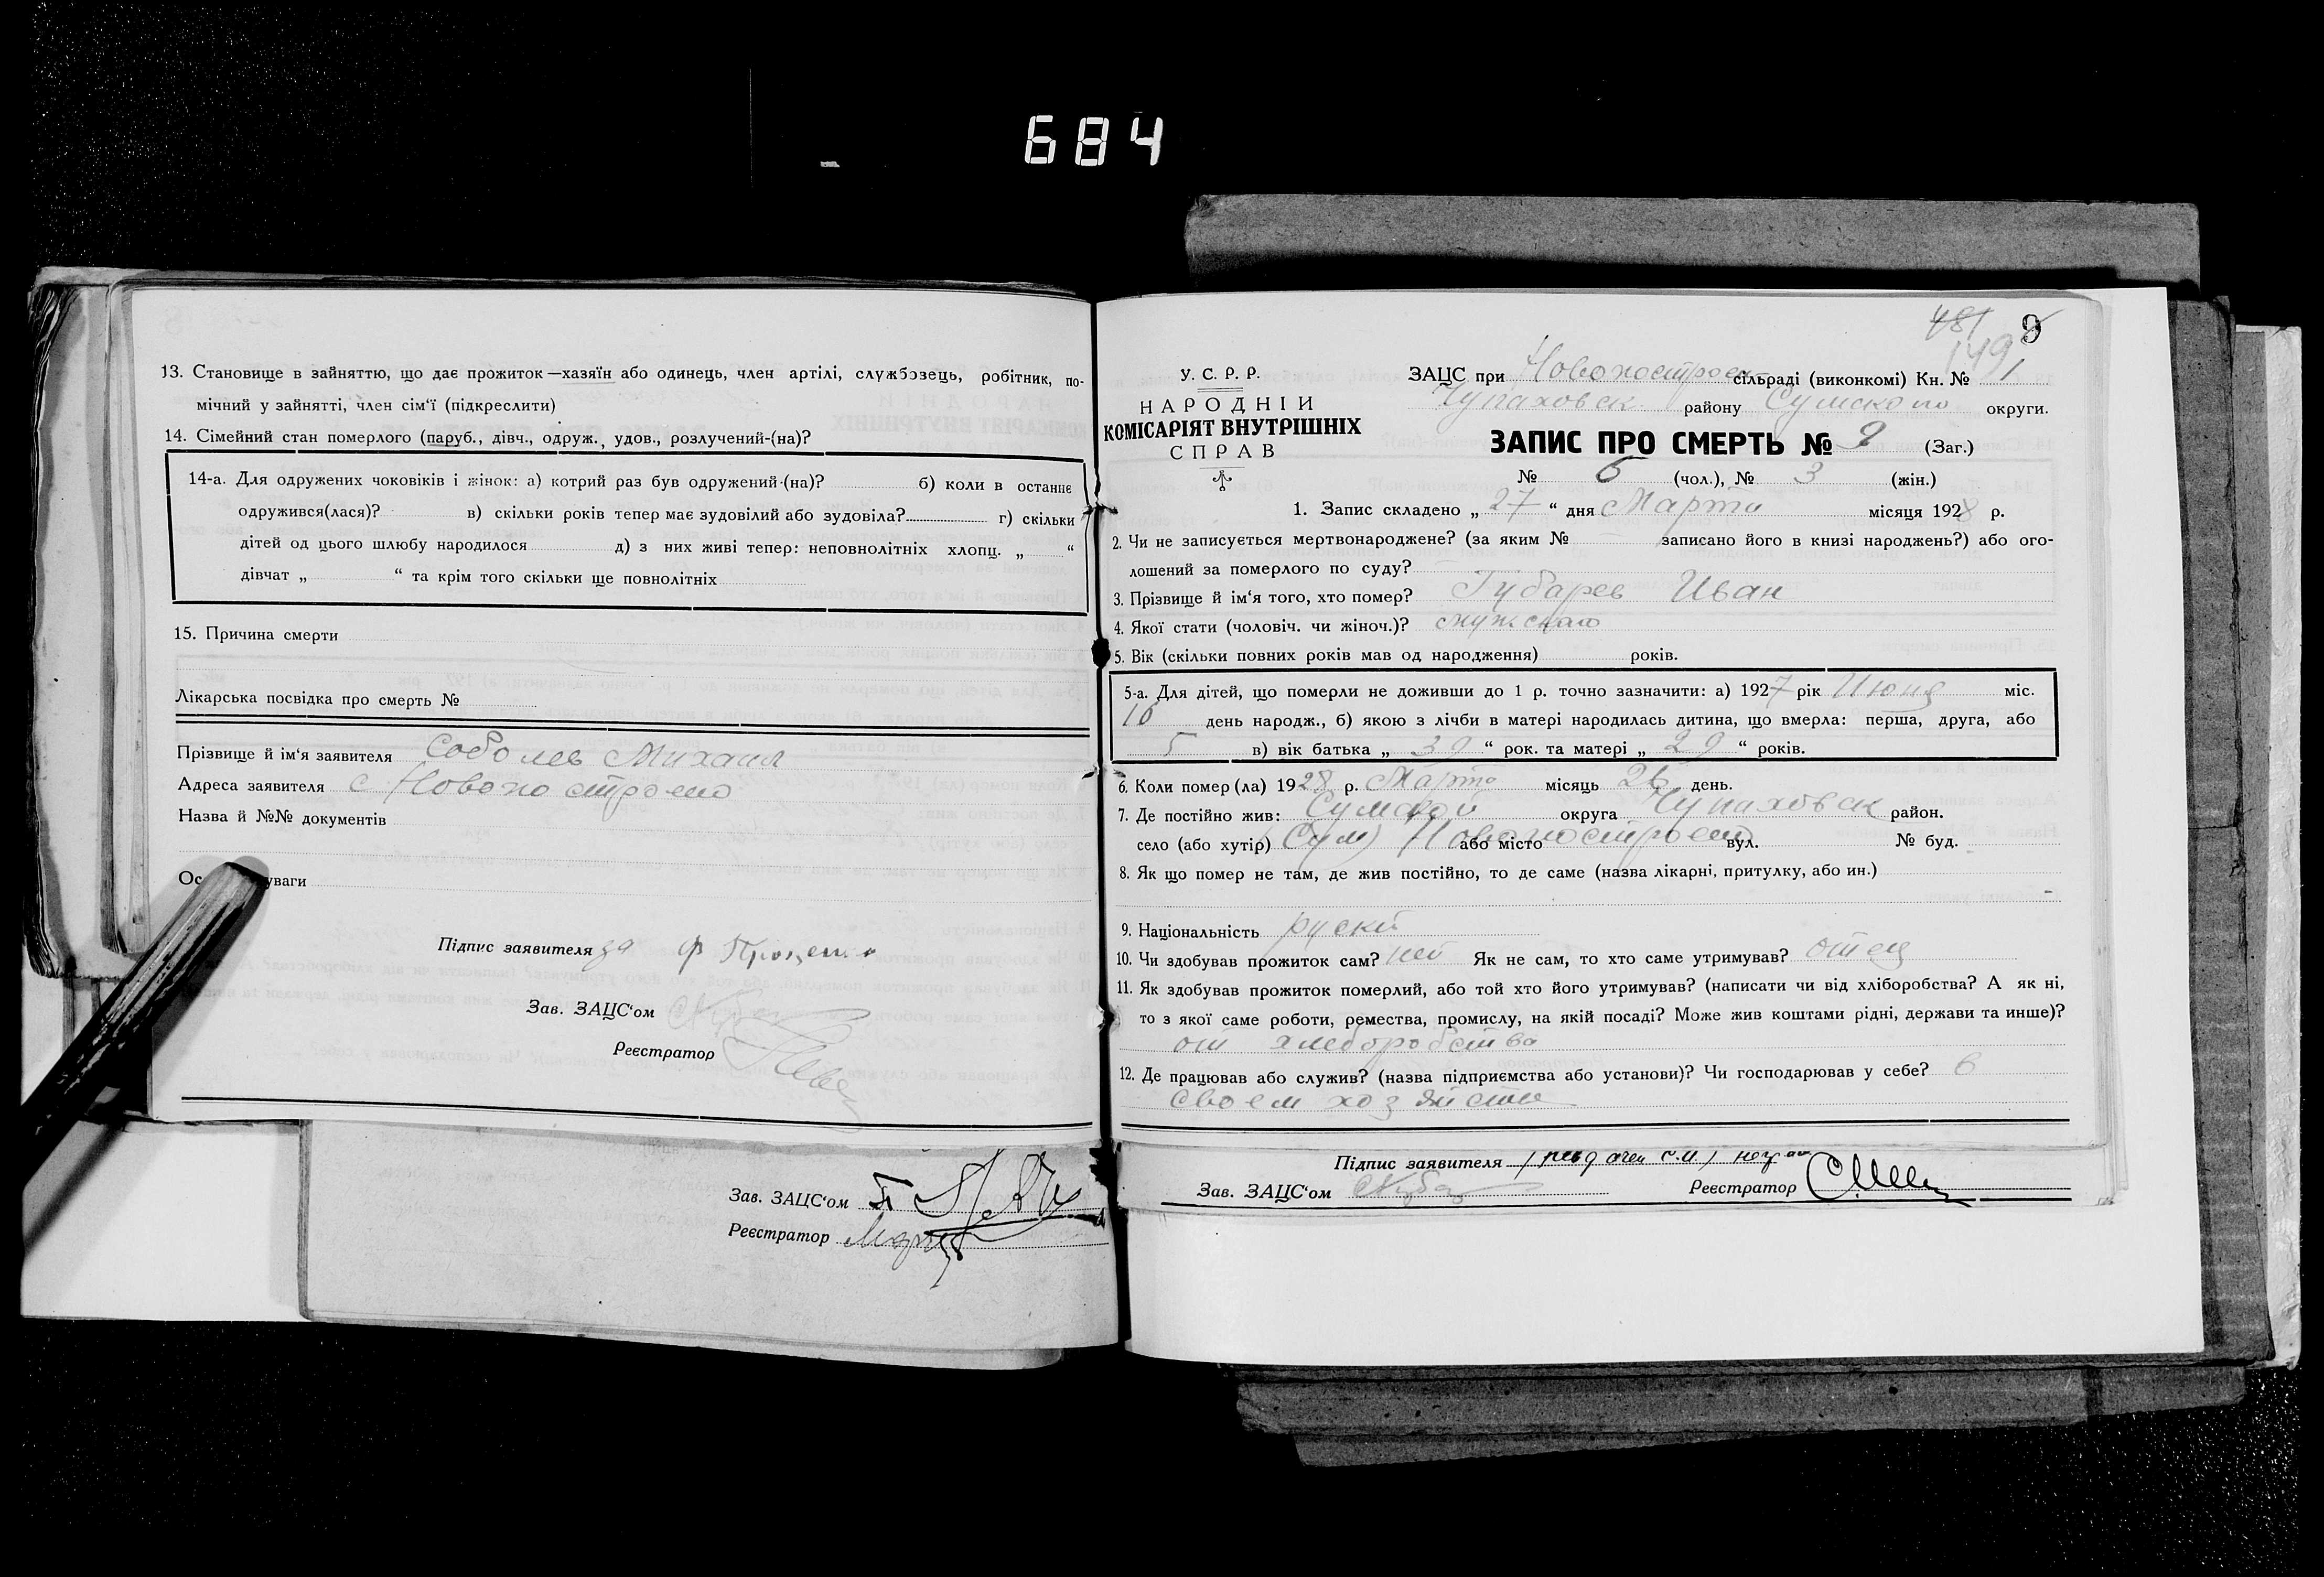 684
13. Становище в зайняттю, що дає прожиток—хазяїн або одинець, член артілі, службовець, робітник, по-
мічний у зайнятті, член сім'ї (підкреслити)
14. Сімейний стан померлого (паруб., дівч., одруж., удов., розлучений-(на)?
14-а. Для одружених чоковіків і жінок: а) котрий раз був одружений-(на)? б) коли в останнє
одружився(лася)? в) скільки років тепер має зудовілий або зудовіла? г) скільки
дітей од цього шлюбу народилося д) з них живі тепер: неповнолітніх хлопц. „ “
дівчат „ “ та крім того скільки ще повнолітніх
15. Причина смерти
Лікарська посвідка про смерть №
Прізвище й ім'я заявителя Соболев Михаил
Адреса заявителя с Новопостроено
Назва й №№ документів
Ос уваги
Підпис заявителя за Ф Проценко
Зав. ЗАЦС'ом
Реєстратор
Зав. ЗАЦС'ом
Реєстратор
481 9
149
У. С. Р. Р.
НАРОДНІЙ
КОМІСАРІЯТ ВНУТРІШНІХ
СПРАВ
ЗАЦС при Новопостроен сільраді (виконкомі) Кн. № 1
Чупаховск району Сумского округи.
ЗАПИС ПРО СМЕРТЬ № 9 (Заг.)
№ 6 (чол.), № 3 (жін.)
1. Запис складено „ 27 “ дня Марта місяця 1928 р.
2. Чи не записується мертвонароджене? (за яким № записано його в книзі народжень?) або ого-
лошений за померлого по суду?
3. Прізвище й ім'я того, хто помер? Губарев Иван
4. Якої стати (чоловіч. чи жіноч.)? мужскаго
5. Вік (скільки повних років мав од народження) років.
5-а. Для дітей, що померли не доживши до 1 р. точно зазначити: а) 1927 рік Июня міс.
10 день народж., б) якою з лічби в матері народилась дитина, що вмерла: перша, друга, або
5 в) вік батька „ 39 “ рок. та матері „ 29 “ років.
6. Коли помер (ла) 1928 р. Марта місяць 26 день.
7. Де постійно жив: Сумской округа Чупаховск район.
село (або хутір) (Сум) Новопостроено або місто вул. № буд.
8. Як що помер не там, де жив постійно, то де саме (назва лікарні, притулку, або ин.)
9. Національність руский
10. Чи здобував прожиток сам? нет Як не сам, то хто саме утримував? отец
11. Як здобував прожиток померлий, або той хто його утримував? (написати чи від хліборобства? А як ні,
то з якої саме роботи, ремества, промислу, на якій посаді? Може жив коштами рідні, держави та инше)?
от хлеборобства
12. Де працював або служив? (назва підприємства або установи)? Чи господарював у себе? в
своем хозяйстве
Підпис заявителя
Зав. ЗАЦС'ом Реєстратор